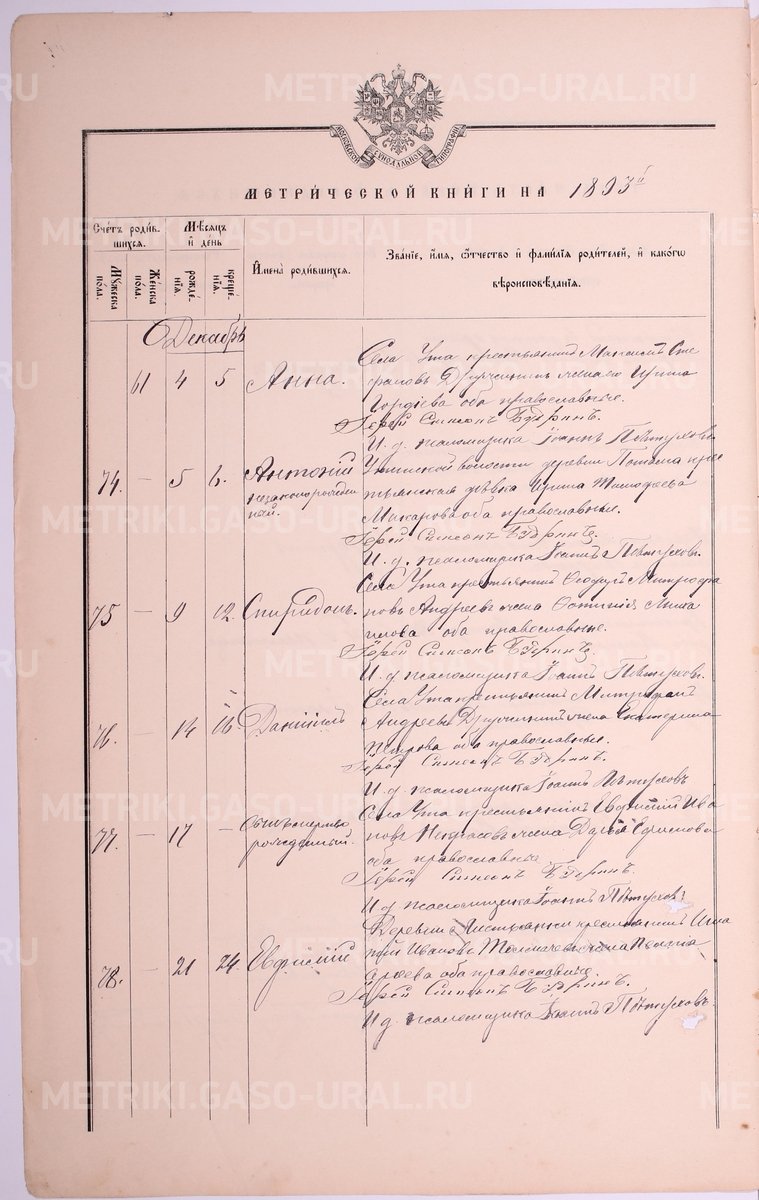 МОСКОВСКОЙ СѴНОДАЛЬНОЙ ТИПОГРАФІИ
МЕТРИ́ЧЕСКОЙ КНИ́ГИ НА 1893 г
Сче́тъ роди́вшихся.
Мѣ́сяцъ и҆ де́нь
И҆мена̀ роди́вшихся.
Зва́нїе, и҆́мя, ѻ҆́тчество и҆ фамилїя роди́телей, и҆ како́гѡ вѣроисповѣ́данїя.
Мꙋжеска по́ла.
Же́нска по́ла.
рожде́нїя.
креще́нїя.
Декабрь
61 4 5 Анна.
Села Ута крестьянинъ Максимъ Сте
фановъ Дручининъ жена его Ирина
Гордѣева оба православные.
Іерей Симеонъ Бѣдринъ.
И. д. псаломщика Іоаннъ Пѣтуховъ
74. — 5 6. Антоній незаконорожден ный.
Уткинской волости деревни Потама крес
тьянская дѣвка Ирина Тимофеева
Макарова оба православные.
Іерей Симеонъ Бѣдринъ.
И. д. псаломщика Іоаннъ Пѣтуховъ.
75 — 9 12. Спиридонъ.
Села Ута крестьянинъ Ѳеодулъ Митрофа
новъ Андреевъ жена Устинія Миха
илова оба православные.
Іерей Симеонъ Бѣдринъ.
И. д. псаломщика Іоаннъ Пѣтуховъ.
76. — 14 16. Даніилъ
Села Ута крестьянинъ Митрофанъ
Андреевъ Дручининъ жена Екатерина
Петрова оба православные.
Іерей Симеонъ Бѣдринъ.
И. д. псаломщика Іоаннъ Пѣтуховъ
77. — 17 — Сынъ мертво рожденный.
Села Ута крестьянинъ Евфимій Ива
новъ Некрасовъ жена Дарья Ефимова
оба православные
Іерей Симеонъ Бѣдринъ.
И. д. псаломщика Іоаннъ Пѣтуховъ
78. — 21 24 Евфимій
Деревни крестьянинъ Игна
тій Ивановъ Толмачевъ жена
оба православные.
Іерей Симеонъ Бѣдринъ.
И. д. псаломщика Іоаннъ Пѣтуховъ.
METRIKI.GASO-URAL.RU